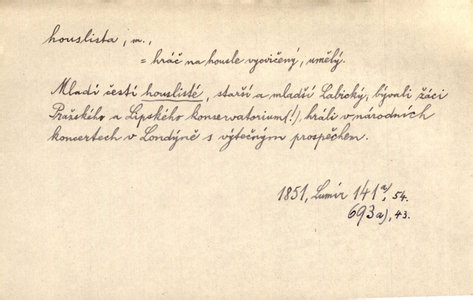 houslista, m.,
= hráč na housle vycvičený, umělý.
Mladí čestí houslisté, starší a mladší Labický, bývali žáci
Pražského a Lipského konservatorium (!), hráli v národních
koncertech v Londýně s výtečným prospěchem.
1851, Lumír 141a), 54.
693a), 43.